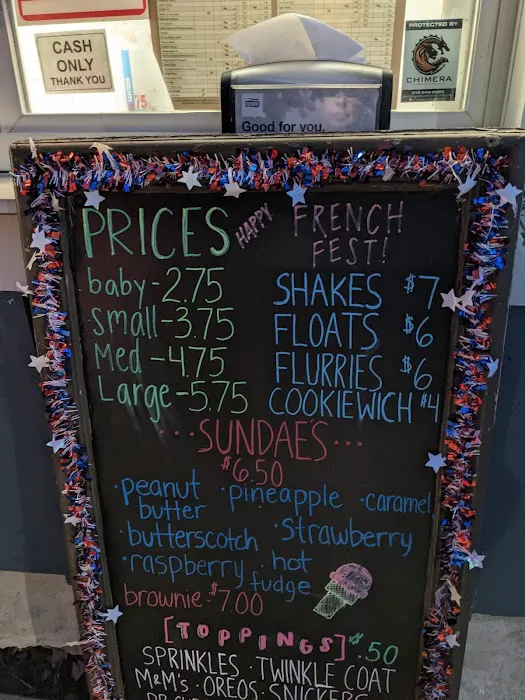 CASH
ONLY
THANK YOU
PROTECTED BY
CHIMERA
Good for you.
PRICES
HAPPY FRENCH
FEST!
baby-2.75
small-3.75
Med -4.75
Large-5.75
SHAKES $7
FLOATS $6
FLURRIES $6
COOKIEWICH $4
...SUNDAES...
$6.50
·peanut butter ·pineapple ·caramel
·butterscotch ·Strawberry
·raspberry ·hot fudge
brownie-$7.00
[TOPPINGS] $.50
SPRINKLES · TWINKLE COAT
M&M's · OREOS · SNICKERS